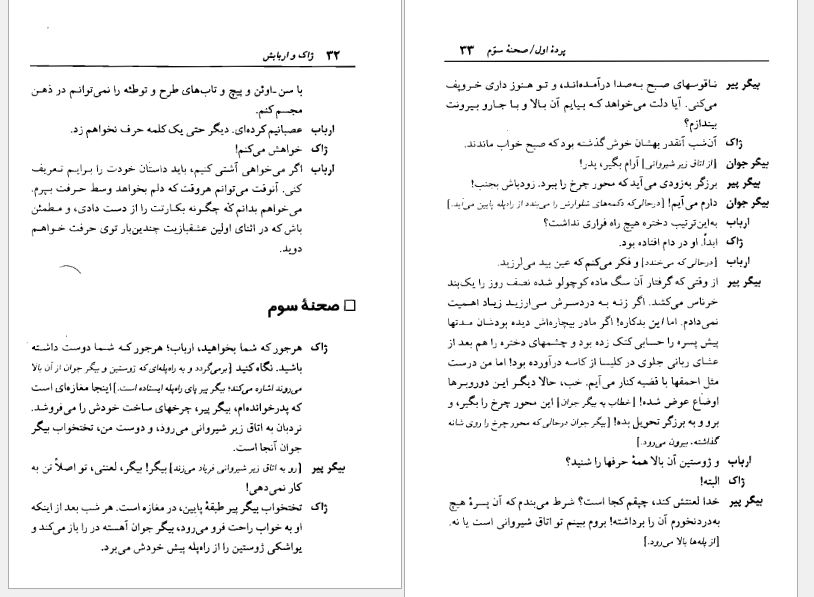 ۳۲ ژاک و اربابش
با سن ـ اوئن و پیچ و تاب‌های طرح و توطئه را نمی‌توانم در ذهن
مجسم کنم.
ارباب عصبانیم کرده‌ای. دیگر حتی یک کلمه حرف نخواهم زد.
ژاک خواهش می‌کنم!
ارباب اگر می‌خواهی آشتی کنیم، باید داستان خودت را برایم تعریف
کنی. آنوقت می‌توانم هروقت که دلم بخواهد وسط حرفت بپرم.
می‌خواهم بدانم که چگونه بکارتت را از دست دادی، و مطمئن
باش که در اثنای اولین عشقبازیت چندین‌بار توی حرفت خواهم
دوید.
صحنهٔ سوم
ژاک هرجور که شما بخواهید، ارباب؛ هرجور که شما دوست داشته
باشید. نگاه کنید [برمی‌گردد و به راه‌پله‌ای که ژوستین و بیگر جوان از آن بالا
می‌روند اشاره می‌کند؛ بیگر پیر پای راه‌پله ایستاده است.] اینجا مغازه‌ای است
که پدرخوانده‌ام، بیگر پیر، چرخهای ساخت خودش را می‌فروشد.
نردبان به اتاق زیر شیروانی می‌رود، و دوست من، تختخواب بیگر
جوان آنجا است.
بیگر پیر [رو به اتاق زیر شیروانی فریاد می‌زند] بیگر! بیگر، لعنتی، تو اصلاً تن به
کار نمی‌دهی!
ژاک تختخواب بیگر پیر طبقهٔ پایین، در مغازه است. هر شب بعد از اینکه
او به خواب راحت فرو می‌رود، بیگر جوان آهسته در را باز می‌کند و
یواشکی ژوستین را از راه‌پله پیش خودش می‌برد.
پردهٔ اول / صحنهٔ سوّم ۳۳
بیگر پیر ناقوسهای صبح به‌صدا درآمده‌اند، و تو هنوز داری خروپف
می‌کنی. آیا دلت می‌خواهد که بیایم آن بالا و با جارو بیرونت
بیندازم؟
ژاک آن‌شب آنقدر بهشان خوش گذشته بود که صبح خواب ماندند.
بیگر جوان [از اتاق زیر شیروانی] آرام بگیر، پدر!
بیگر پیر برزگر به‌زودی می‌آید که محور چرخ را ببرد. زودباش بجنب!
بیگر جوان دارم می‌آیم! [درحالی‌که دکمه‌های شلوارش را می‌بندد از راه‌پله پایین می‌آید.]
ارباب به‌این‌ترتیب دختره هیچ راه فراری نداشت؟
ژاک ابداً. او در دام افتاده بود.
ارباب [درحالی که می‌خندد] و فکر می‌کنم که عین بید می‌لرزید.
بیگر پیر از وقتی که گرفتار آن سگ ماده کوچولو شده نصف روز را یک‌بند
خرناس می‌کشد. اگر زنه به دردسرش می‌ارزید زیاد اهمیت
نمی‌دادم. اما این بدکاره! اگر مادر بیچاره‌اش دیده بودشان مدتها
پیش پسره را حسابی کتک زده بود و چشمهای دختره را هم بعد از
عشای ربانی جلوی در کلیسا از کاسه درآورده بود! اما من درست
مثل احمقها با قضیه کنار می‌آیم. خب، حالا دیگر این دوروبرها
اوضاع عوض شده! [خطاب به بیگر جوان] این محور چرخ را بگیر، و
برو و به برزگر تحویل بده! [بیگر جوان درحالی که محور چرخ را روی شانه
گذاشته، بیرون می‌رود.]
ارباب و ژوستین آن بالا همهٔ حرفها را شنید؟
ژاک البته!
بیگر پیر خدا لعنتش کند، چپقم کجا است؟ شرط می‌بندم که آن پسرهٔ هیچ
به‌دردنخورم آن را برداشته! بروم ببینم تو اتاق شیروانی است یا نه.
[از پله‌ها بالا می‌رود.]